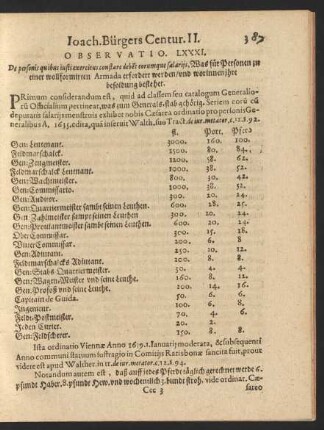 Ioach. Bürgers Centur. II. 387
OBSERVATIO. LXXXI.
De personis quibus iusti exercitus constare debet eorumque salariis. Was für Personen zu
einer wollformirten Armada erfordert werden/ und worinnen jhre
besoldung bestehet.
PRimum considerandum est, quid ad classem seu catalogum Generalio-
rũ Officialium pertineat, was zum Generals-stab gehörig. Seriem eorũ cũ
deputatis salariis menstruis exhibet nobis Cæsarea ordinatio pro personis Ge-
neralibus A. 1635. edita, quã inseruit Walth. suo Tract. de iur. metator. c. 1. §. 92.
fl. Port. Pferd
Gen: Leutenant. 3000. 160. 100.
Feldmarschalck. 1500. 80. 84.
Gen: Zeugmeister. 1200. 58. 62.
Feldmarschalck Leutenant. 1000. 38. 52.
Gen: Wachtmeister. 800. 30. 42.
Gen: Commissarie. 1000. 38. 52.
Gen: Auditor. 300. 20. 24.
Gen: Quartiermeister sampt seinen Leuthen. 600. 28. 25.
Gen Zahlmeister sampt seinen Leuthen 300. 20. 24.
Gen: Proviantmeister sambt seinen Leuthen. 600. 20. 24.
Ober Commissar. 300. 15. 18.
Unter Commissar. 100. 6. 8
Gen: Adiutant. 200. 10. 12.
Feldmarschalcks Adiutant. 100. 8. 8.
Gen: Stabs Quartiermeister. 50. 4. 4.
Gen: Wagen Meister und seine Leuthe. 160. 8. 12.
Gen: Profoß und seine Leuthe. 200. 14. 24.
Capitain de Guida. 50. 6. 6.
Ingenieur. 100. 6. 8.
Feldt-Postmeister. 50. 4. 6.
Jeden Curier. 20. 2. 2.
Gen: Feldscherer. 50. 6. 8.
Ista ordinatio Viennæ Anno 1639. 1. Ianuarij moderata, & subsequenti
Anno communi statuum suffragio in Comitiis Ratisbonæ sancita fuit, prout
videre est apud Walther. in tr. de iur. metator. c. 1. §. 92.
Notandum autem est, daß auff jedes Pferdt täglich gerechnet werde 6.
pfundt Haber, 8. pfundt Hew, und wochentlich 3. bundt stroh, vide ordinat. Cæ-
Ccc 3 sareo